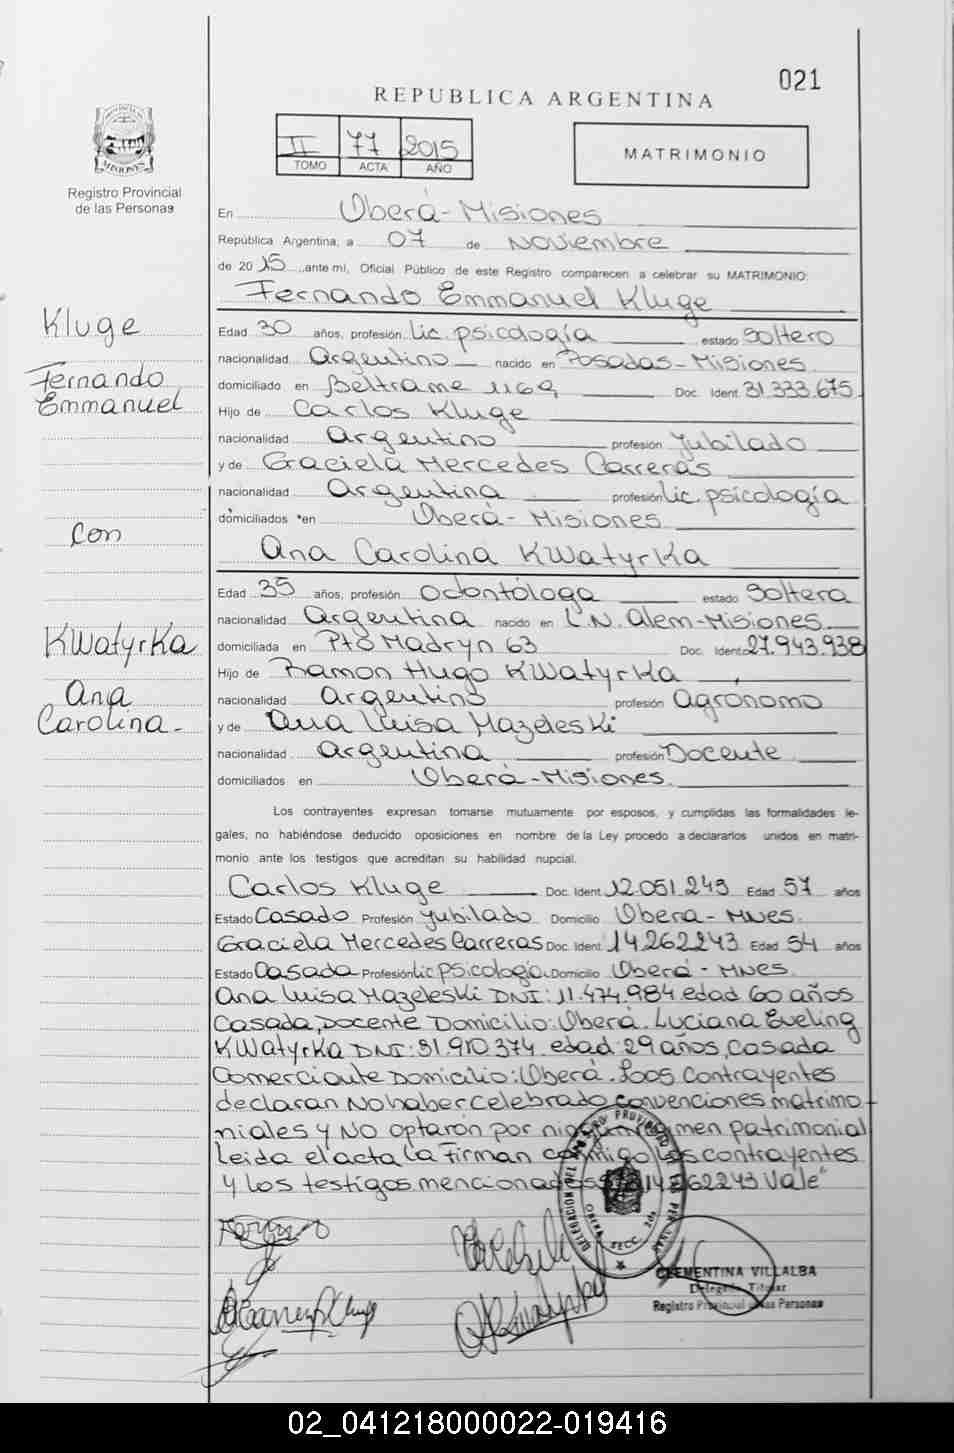 021
REPUBLICA ARGENTINA
II 77 2015
TOMO ACTA AÑO
MATRIMONIO
PROVINCIA DE
MISIONES
Registro Provincial
de las Personas
En Oberá-Misiones
República Argentina, a 07 de Noviembre
de 2015, ante mí, Oficial Público de este Registro comparecen a celebrar su MATRIMONIO:
Fernando Emmanuel Kluge
Kluge
Fernando
Emmanuel
Con
KWatyrKa
Ana
Carolina-
Edad 30 años, profesión Lic. psicología estado Soltero
nacionalidad Argentino nacido en Posadas-Misiones
domiciliado en Beltrame 1169 Doc. Ident. 31.333.675
Hijo de Carlos Kluge
nacionalidad Argentino profesión Jubilado
y de Graciela Mercedes Carreras
nacionalidad Argentina profesión Lic. psicología
domiciliados en Oberá-Misiones
Ana Carolina KWatyrKa
Edad 35 años, profesión Odontóloga estado Soltera
nacionalidad Argentina nacido en L.N. Alem-Misiones
domiciliada en Pto Madryn 63 Doc. Ident. 27.943.938
Hijo de Ramon Hugo KWatyrKa
nacionalidad Argentino profesión Agrónomo
y de Ana Luisa Mazeleski
nacionalidad Argentina profesión Docente
domiciliados en Oberá-Misiones.
Los contrayentes expresan tomarse mutuamente por esposos, y cumplidas las formalidades le-
gales, no habiéndose deducido oposiciones en nombre de la Ley procedo a declararlos unidos en matri-
monio ante los testigos que acreditan su habilidad nupcial.
Carlos Kluge Doc. Ident. 12.051.249 Edad 57 años
Estado Casado Profesión Jubilado Domicilio Oberá-Mnes.
Graciela Mercedes Carreras Doc. Ident. 14.262243 Edad 54 años
Estado Casada Profesión Lic psicología Domicilio Oberá-Mnes.
Ana Luisa Mazeleski DNI: 11.474.984 edad 60 años
Casada, Docente Domicilio: Oberá. Luciana Eveling
KWatyrKa DNI: 31.910.374 edad: 29 años, Casada
Comerciante Domicilio: Oberá. Loos Contrayentes
declaran No haber celebrado convenciones matrimo-
niales y No optaron por ningun regimen patrimonial
Leida el acta la Firman conmigo los contrayentes
y los testigos mencionados 14262243 Vale"
CLEMENTINA VILLALBA
Delegada Titular
Registro Provincial de las Personas
02_041218000022-019416